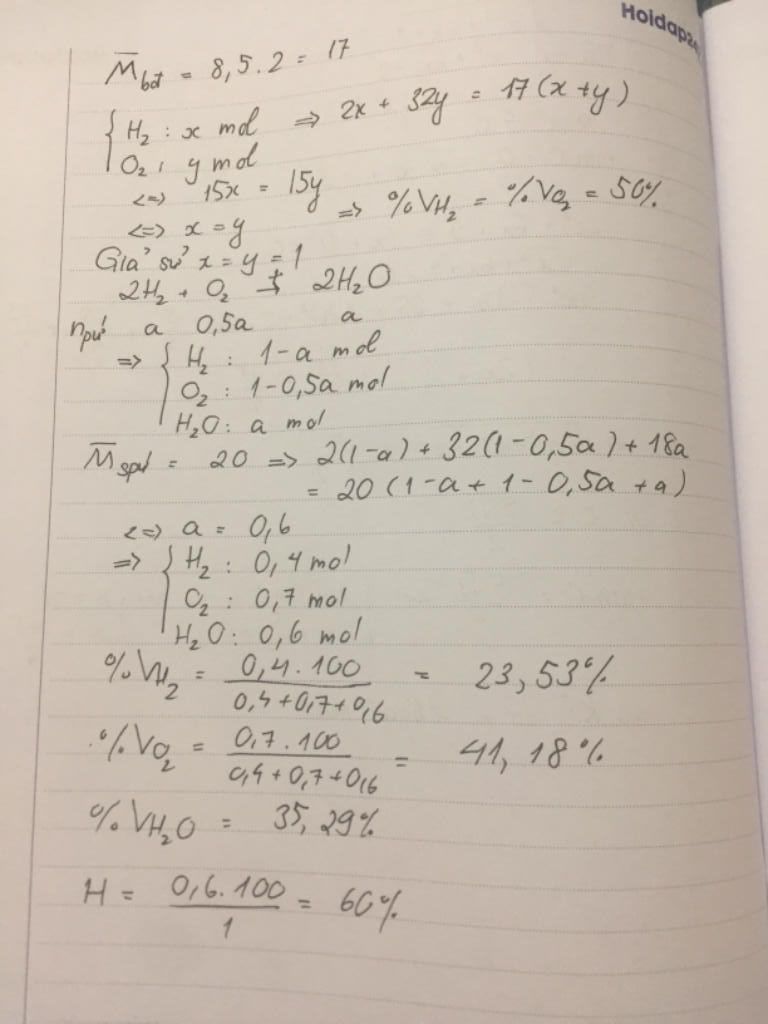 Hoidap2
M̅bđ = 8,5.2 = 17
{ H₂ : x mol ⇒ 2x + 32y = 17(x+y)
O₂ : y mol
<=> 15x = 15y
<=> x = y ⇒ %VH₂ = %VO₂ = 50%
Giả sử x = y = 1
2H₂ + O₂ →(t°) 2H₂O
npứ a 0,5a a
⇒ { H₂ : 1-a mol
O₂ : 1-0,5a mol
H₂O: a mol
M̅spứ = 20 ⇒ 2(1-a) + 32(1-0,5a) + 18a
= 20 (1-a + 1 - 0,5a + a)
<=> a = 0,6
⇒ { H₂ : 0,4 mol
O₂ : 0,7 mol
H₂O: 0,6 mol
%VH₂ = 0,4.100 / 0,4+0,7+0,6 = 23,53%
%VO₂ = 0,7.100 / 0,4+0,7+0,6 = 41,18%
%VH₂O = 35,29%
H = 0,6.100 / 1 = 60%